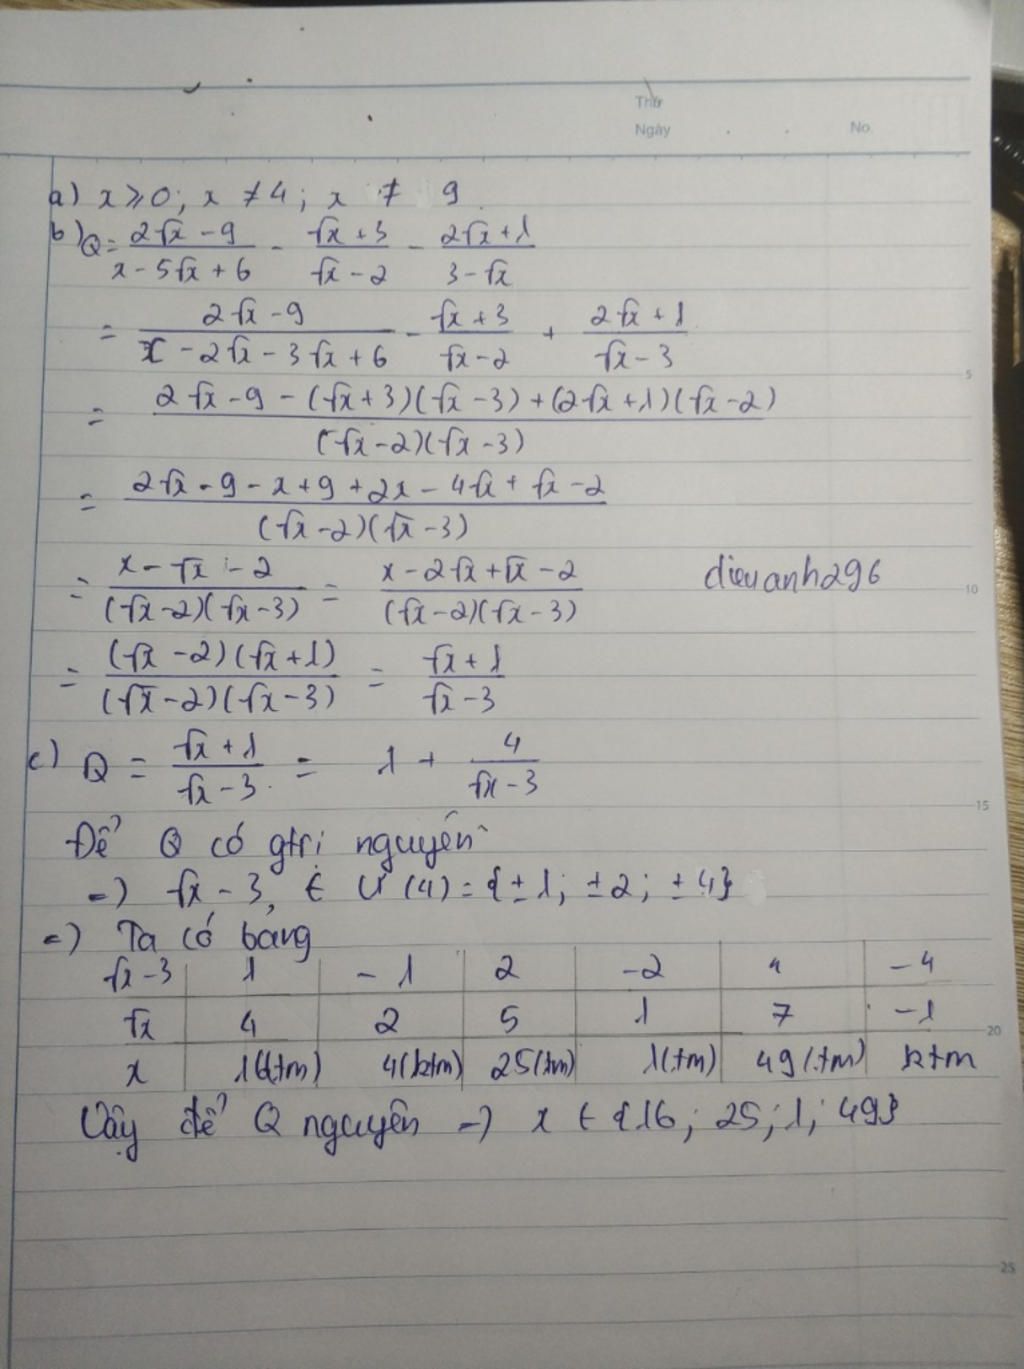 Thứ
Ngày No.
a) x ≥ 0; x ≠ 4; x ≠ 9
b) Q = (2√x - 9)/(x - 5√x + 6) - (√x + 3)/(√x - 2) - (2√x + 1)/(3 - √x)
= (2√x - 9)/(x - 2√x - 3√x + 6) - (√x + 3)/(√x - 2) + (2√x + 1)/(√x - 3)
5
= (2√x - 9 - (√x + 3)(√x - 3) + (2√x + 1)(√x - 2))/((√x - 2)(√x - 3))
= (2√x - 9 - x + 9 + 2x - 4√x + √x - 2)/((√x - 2)(√x - 3))
= (x - √x - 2)/((√x - 2)(√x - 3)) = (x - 2√x + √x - 2)/((√x - 2)(√x - 3)) dieuanh296
10
= ((√x - 2)(√x + 1))/((√x - 2)(√x - 3)) = (√x + 1)/(√x - 3)
c) Q = (√x + 1)/(√x - 3) = 1 + 4/(√x - 3)
15
Để Q có gtri nguyên
=) √x - 3 ∈ Ư(4) = {±1; ±2; ±4}
=) Ta có bảng
√x - 3 1 - 1 2 - 2 4 - 4
√x 4 2 5 1 7 - 1
20
x (tm) 4(ktm) 25(tm) 1(tm) 49(tm) ktm
Vậy để Q nguyên =) x ∈ {16; 25; 1; 49}
25